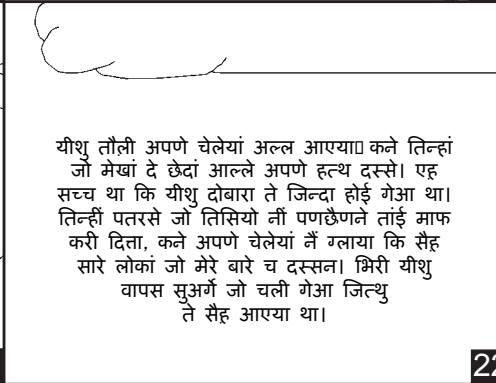 यीशु तौल़ी अपणे चेलेयां अल्ल आएया▯ कने तिन्हां
जो मेखां दे छेदां आल्ले अपणे हत्थ दस्से। एह़
सच्च था कि यीशु दोबारा ते जिन्दा होई गेआ था।
तिन्हीं पतरसे जो तिसियो नीं पणछैणने तांई माफ
करी दित्ता, कने अपणे चेलेयां नैं ग्लाया कि सैह़
सारे लोकां जो मेरे बारे च दस्सन। भिरी यीशु
वापस सुअर्गे जो चली गेआ जित्थु
ते सैह़ आएया था।